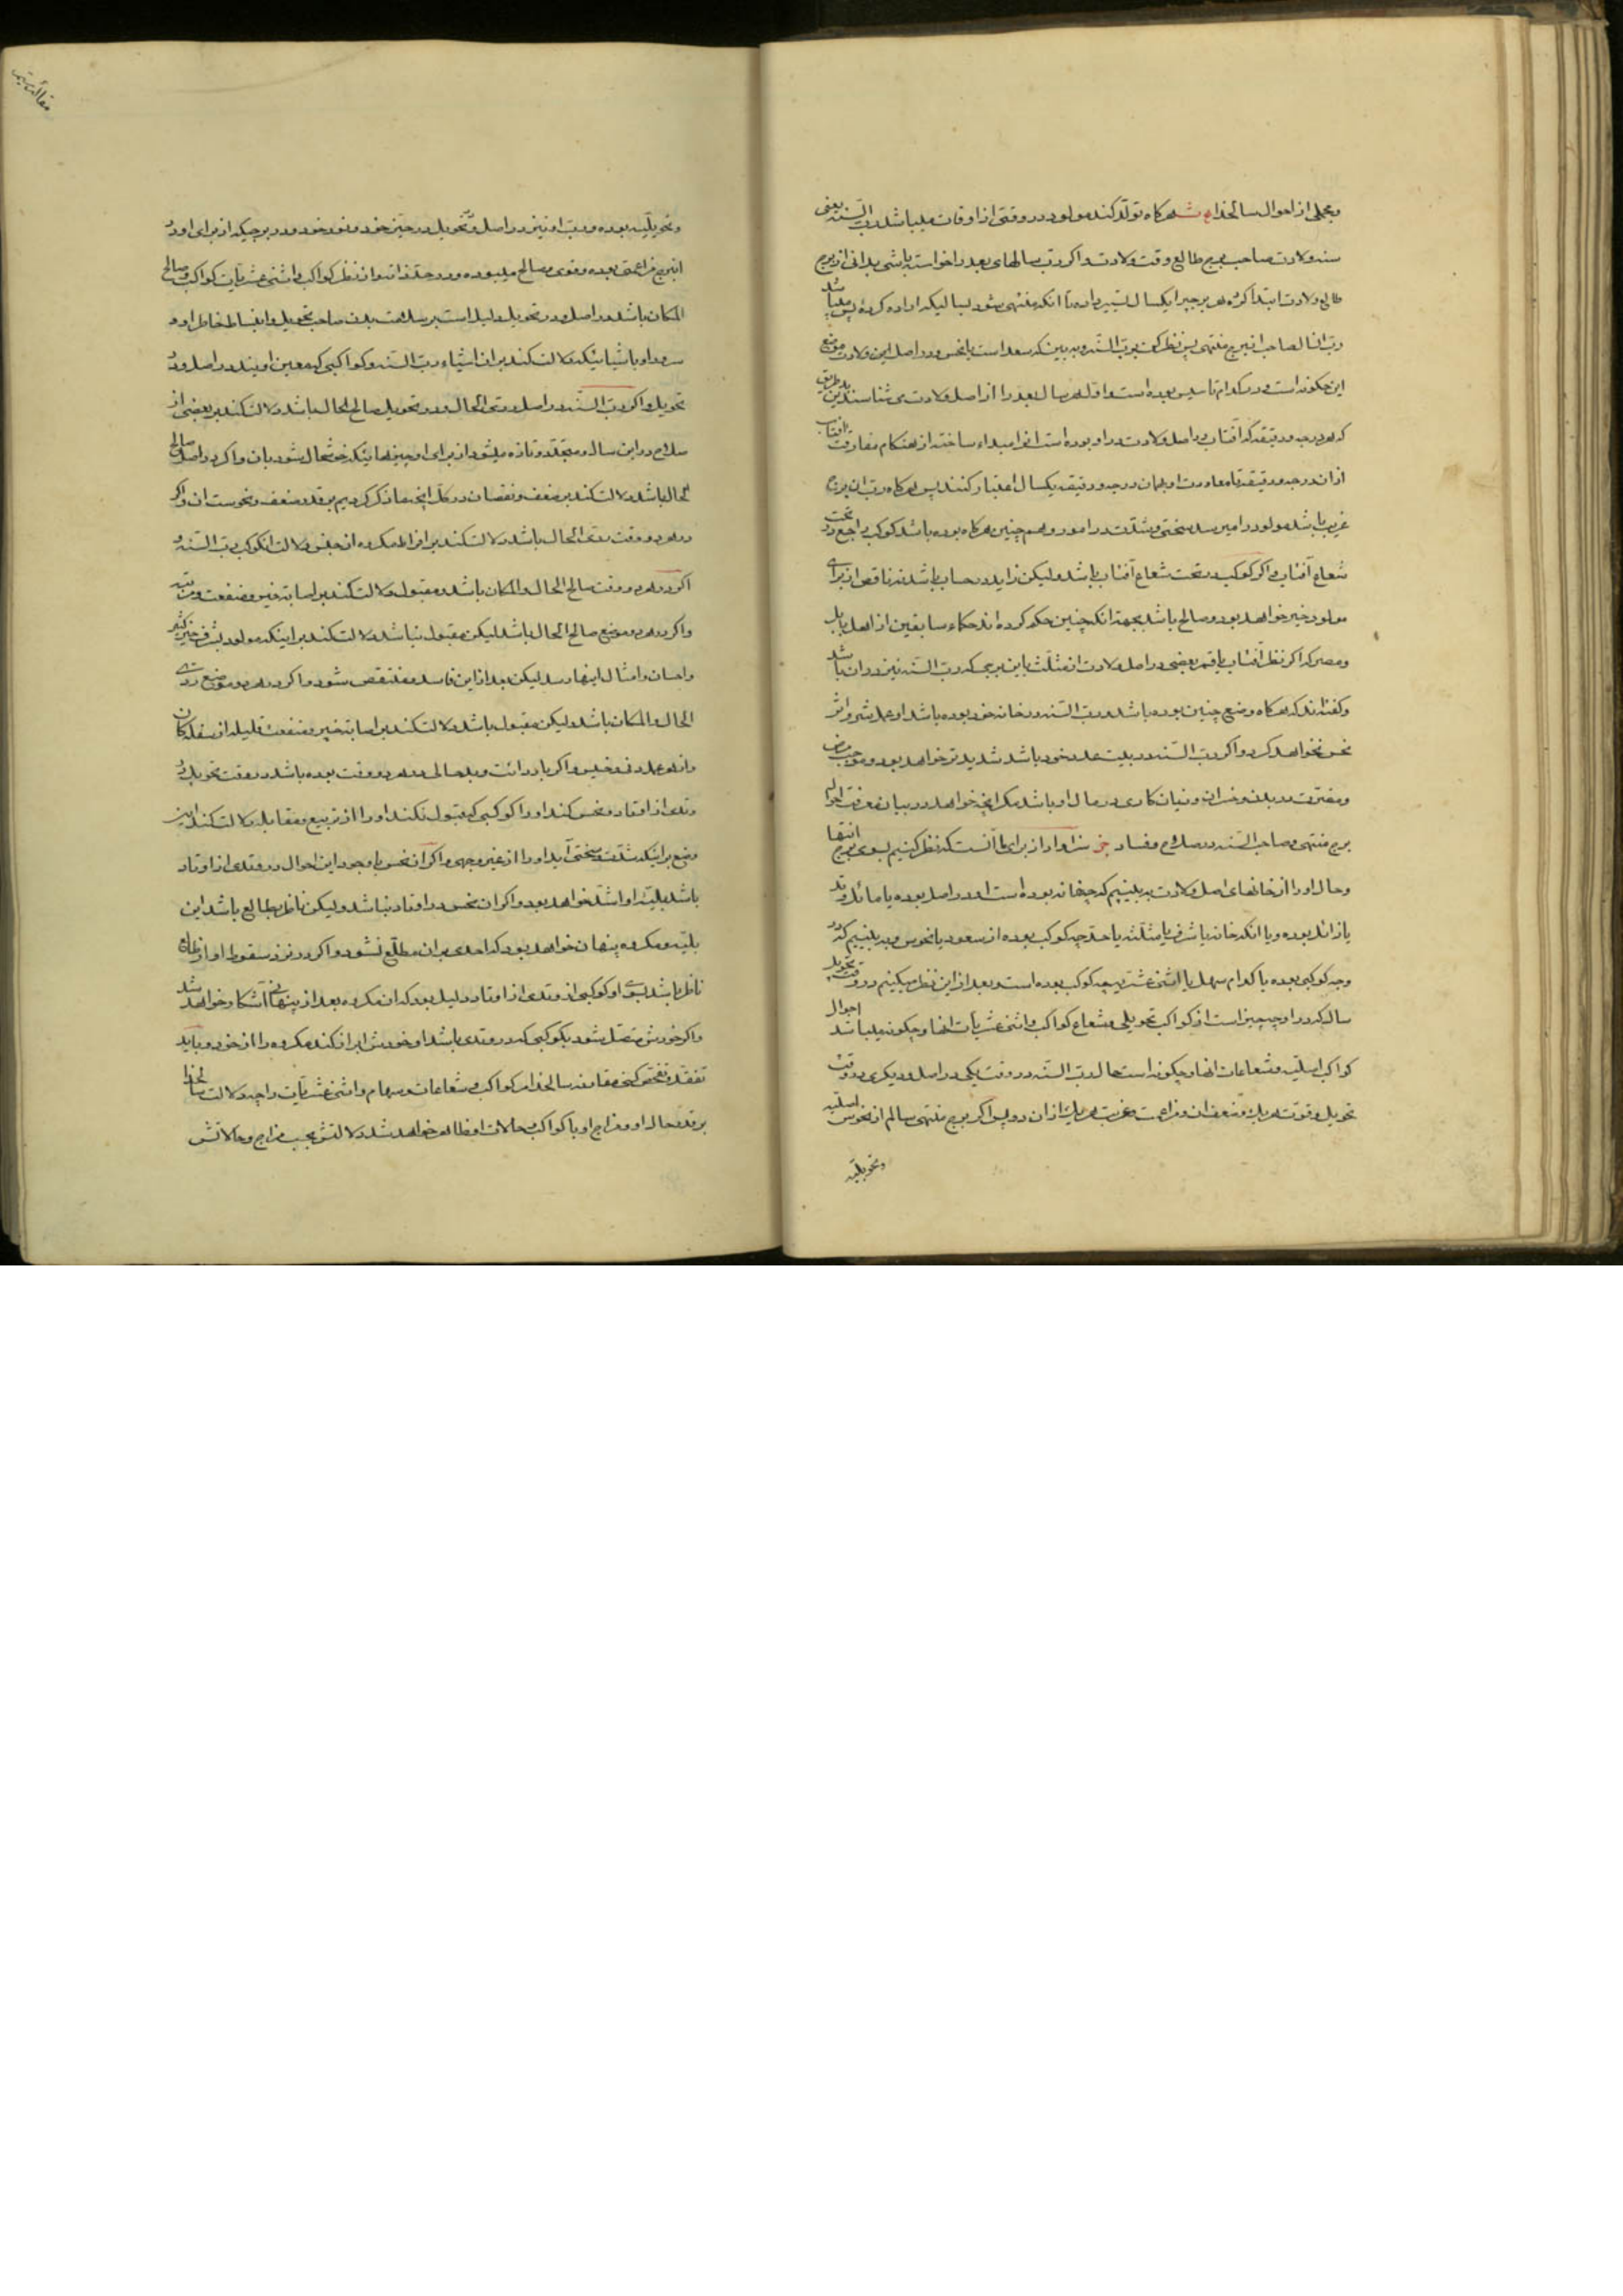 و مجملی از احوال سالخداه هرگاه تولد کند مولود در وقتی از اوقات میباشد رب السنه یعنی
سنه ولادت صاحب برج طالع وقت ولادت و اگر رب سالهای بعد را خواسته باشی بدانی از برج
طالع ولادت ابتدا کرده هر برجی را یکسال تسییر داده تا آنکه منتهی شود بسالیکه اراده کرده پس میباشد
رب آنسال صاحب آنبرج منتهی پس نظر کن برب السنه و ببین که سعد است یا نحس و در اصل این ولادت موضع
این چگونه است و در کدام تاسیس بوده است و اول هر سال بعد را از اصل ولادت می شناسند باین طریق
که هر درجه و دقیقه که آفتاب در اصل ولادت در او بوده است آنرا مبداء ساخته از هنگام مفارقت آفتاب
از آن درجه و دقیقه تا معاودت او بهمان درجه و دقیقه یکسال اعتبار کنند پس هرگاه رب آن برج
غریب باشد مولود را میرسد سختی و شدت در امور و همچنین هرگاه بوده باشد کوکب راجع و در تحت
شعاع آفتاب و اگر کوکب در تحت شعاع آفتاب باشد ولیکن زاید در حساب باشد نه ناقص از برای
مولود خیر خواهد بود و صالح باشد بجهة آنکه چنین حکم کرده اند حکماء سابقین از اهل بابل
و مصر که اگر نظر آفتاب یا قمر بعضی در اصل ولادت از مثلث باین برجی که رب السنه نیز در آن باشد
و گفته اند که هرگاه وضع چنین بوده باشد و رب السنه در خانه خود بوده باشد او عمل شر و اثر
نحس نخواهد کرد و اگر رب السنه در بیت عدو خود باشد شدیدتر خواهد بود و موجب مرض
و مضرت در بدن و خسران و زیان کاری در مال او باشد مگر آنچه خواهد در بیان معرفت احوال
برج منتهی و صاحب السنه در صلاح و فساد سزاوار از برای ما آنست که نظر کنیم بسوی برج انتها
و حال او را از خانهای اصل ولادت ببینیم که چه خانه بوده است او در اصل بوده یا مائل وتد
یا زائل بوده و یا آنکه خانه یا شرف یا مثلثه یا حد چه کوکب بوده از سعود یا نحوس و ببینیم که در او
چه کوکبی بوده یا کدام سهم یا اثنی عشریه چه کوکب بوده است و بعد از این نظر میکنیم در وقت تحویل
سال که در او چه چیز است از کواکب تحویلی و شعاع کواکب و اثنی عشریات آنها و چگونه میباشد احوال
کواکب اصلیه و شعاعات آنها و چگونه است حال رب السنه در دو وقت یکی در اصل و دیگری در وقت
تحویل و قوت هر یک و ضعف آن و مزاجت و غربت هر یک از آن دو پس اگر برج منتهی سالم از نحوس اصلیه
و تحویلیه
و تحویلیه بوده و رب او نیز در اصل و تحویل در حیز خود و نفوذ خود و در برجیکه از برای او در
آنبرج مزاعمتی بوده و قوی و صالح میبوده و در حد ذات و از نظر کواکب و اثنی عشریات کواکب و صالح
المکان باشد در اصل و در تحویل دلیل است بر سلامت بدن صاحب تحویل و انبساط خاطر او و
سرور او باشیائیکه دلالت کند بر آن اشیاء رب السنه و کواکبی که معین اویند در اصل و در
تحویل و اگر رب السنه در اصل ردی الحال و در تحویل صالح الحال باشد دلالت کند بر بعضی از
صلاح در این سال و متجدد و تازه میشود از برای او چیزهائیکه خوشحال شود بآن و اگر در اصل صالح
الحال باشد دلالت کند بر ضعف و نقصان در کل آنچه ما ذکر کردیم بر قدر ضعف و نحوست آن و اگر
در هر دو وقت ردی الحال باشد دلالت کند بر افراط مکروه از جنس دلالت آنکوکب رب السنه و
اگر در هر دو وقت صالح الحال و المکان باشد و مقبول دلالت کند بر اصابت خیر و منفعت و مرتبه
و اگر در هر دو موضع صالح الحال باشد لیکن مقبول نباشد دلالت کند بر اینکه مولود بشرف و خیر کثیر
و احسان و امثال اینها رسد لیکن بعد از این فاسد و منتقص شود و اگر در هر دو موضع ردی
الحال و المکان باشد ولیکن مقبول باشد دلالت کند بر اصابت خیر و منفعت قلیله از سفلگان
و از هر عمل دنی و خسیس و اگر با ردائت و بدحالی در هر دو وقت بوده باشد در وقت تحویل در
وتدی از اوتاد و نحس کند او را کوکبی که قبول نکند او را از تربیع و مقابله دلالت کند این
وضع بر اینکه شدت و سختی آید او را از غیر وجهی و اگر آن نحس با وجود این احوال در وتدی از اوتاد
باشد بلیه او اشد خواهد بود و اگر آن نحس در اوتاد نباشد ولیکن ناظر بطالع باشد این
بلیه و مکروه پنهان خواهد بود که احدی بر آن مطلع نشود و اگر در نزد سقوط او از طالع
ناظر باشد بسوی او کوکبی از وتدی از اوتاد دلیل بود که آن مکروه بعد از پنهانی آشکار خواهد شد
و اگر خودش متصل شود بکوکبی که در وتدی باشد او خودش ابراز کند مکروه را از خود و باید
تفقد و تفحص کنی مقارنه سالخداه کواکب و شعاعات و سهام و اثنی عشریات را چه دلالت سالخداه
بر قدر حال او و مزاج او با کواکب و حالات او ظاهر خواهد شد و دلالتش بحسب مزاج و حالاتش